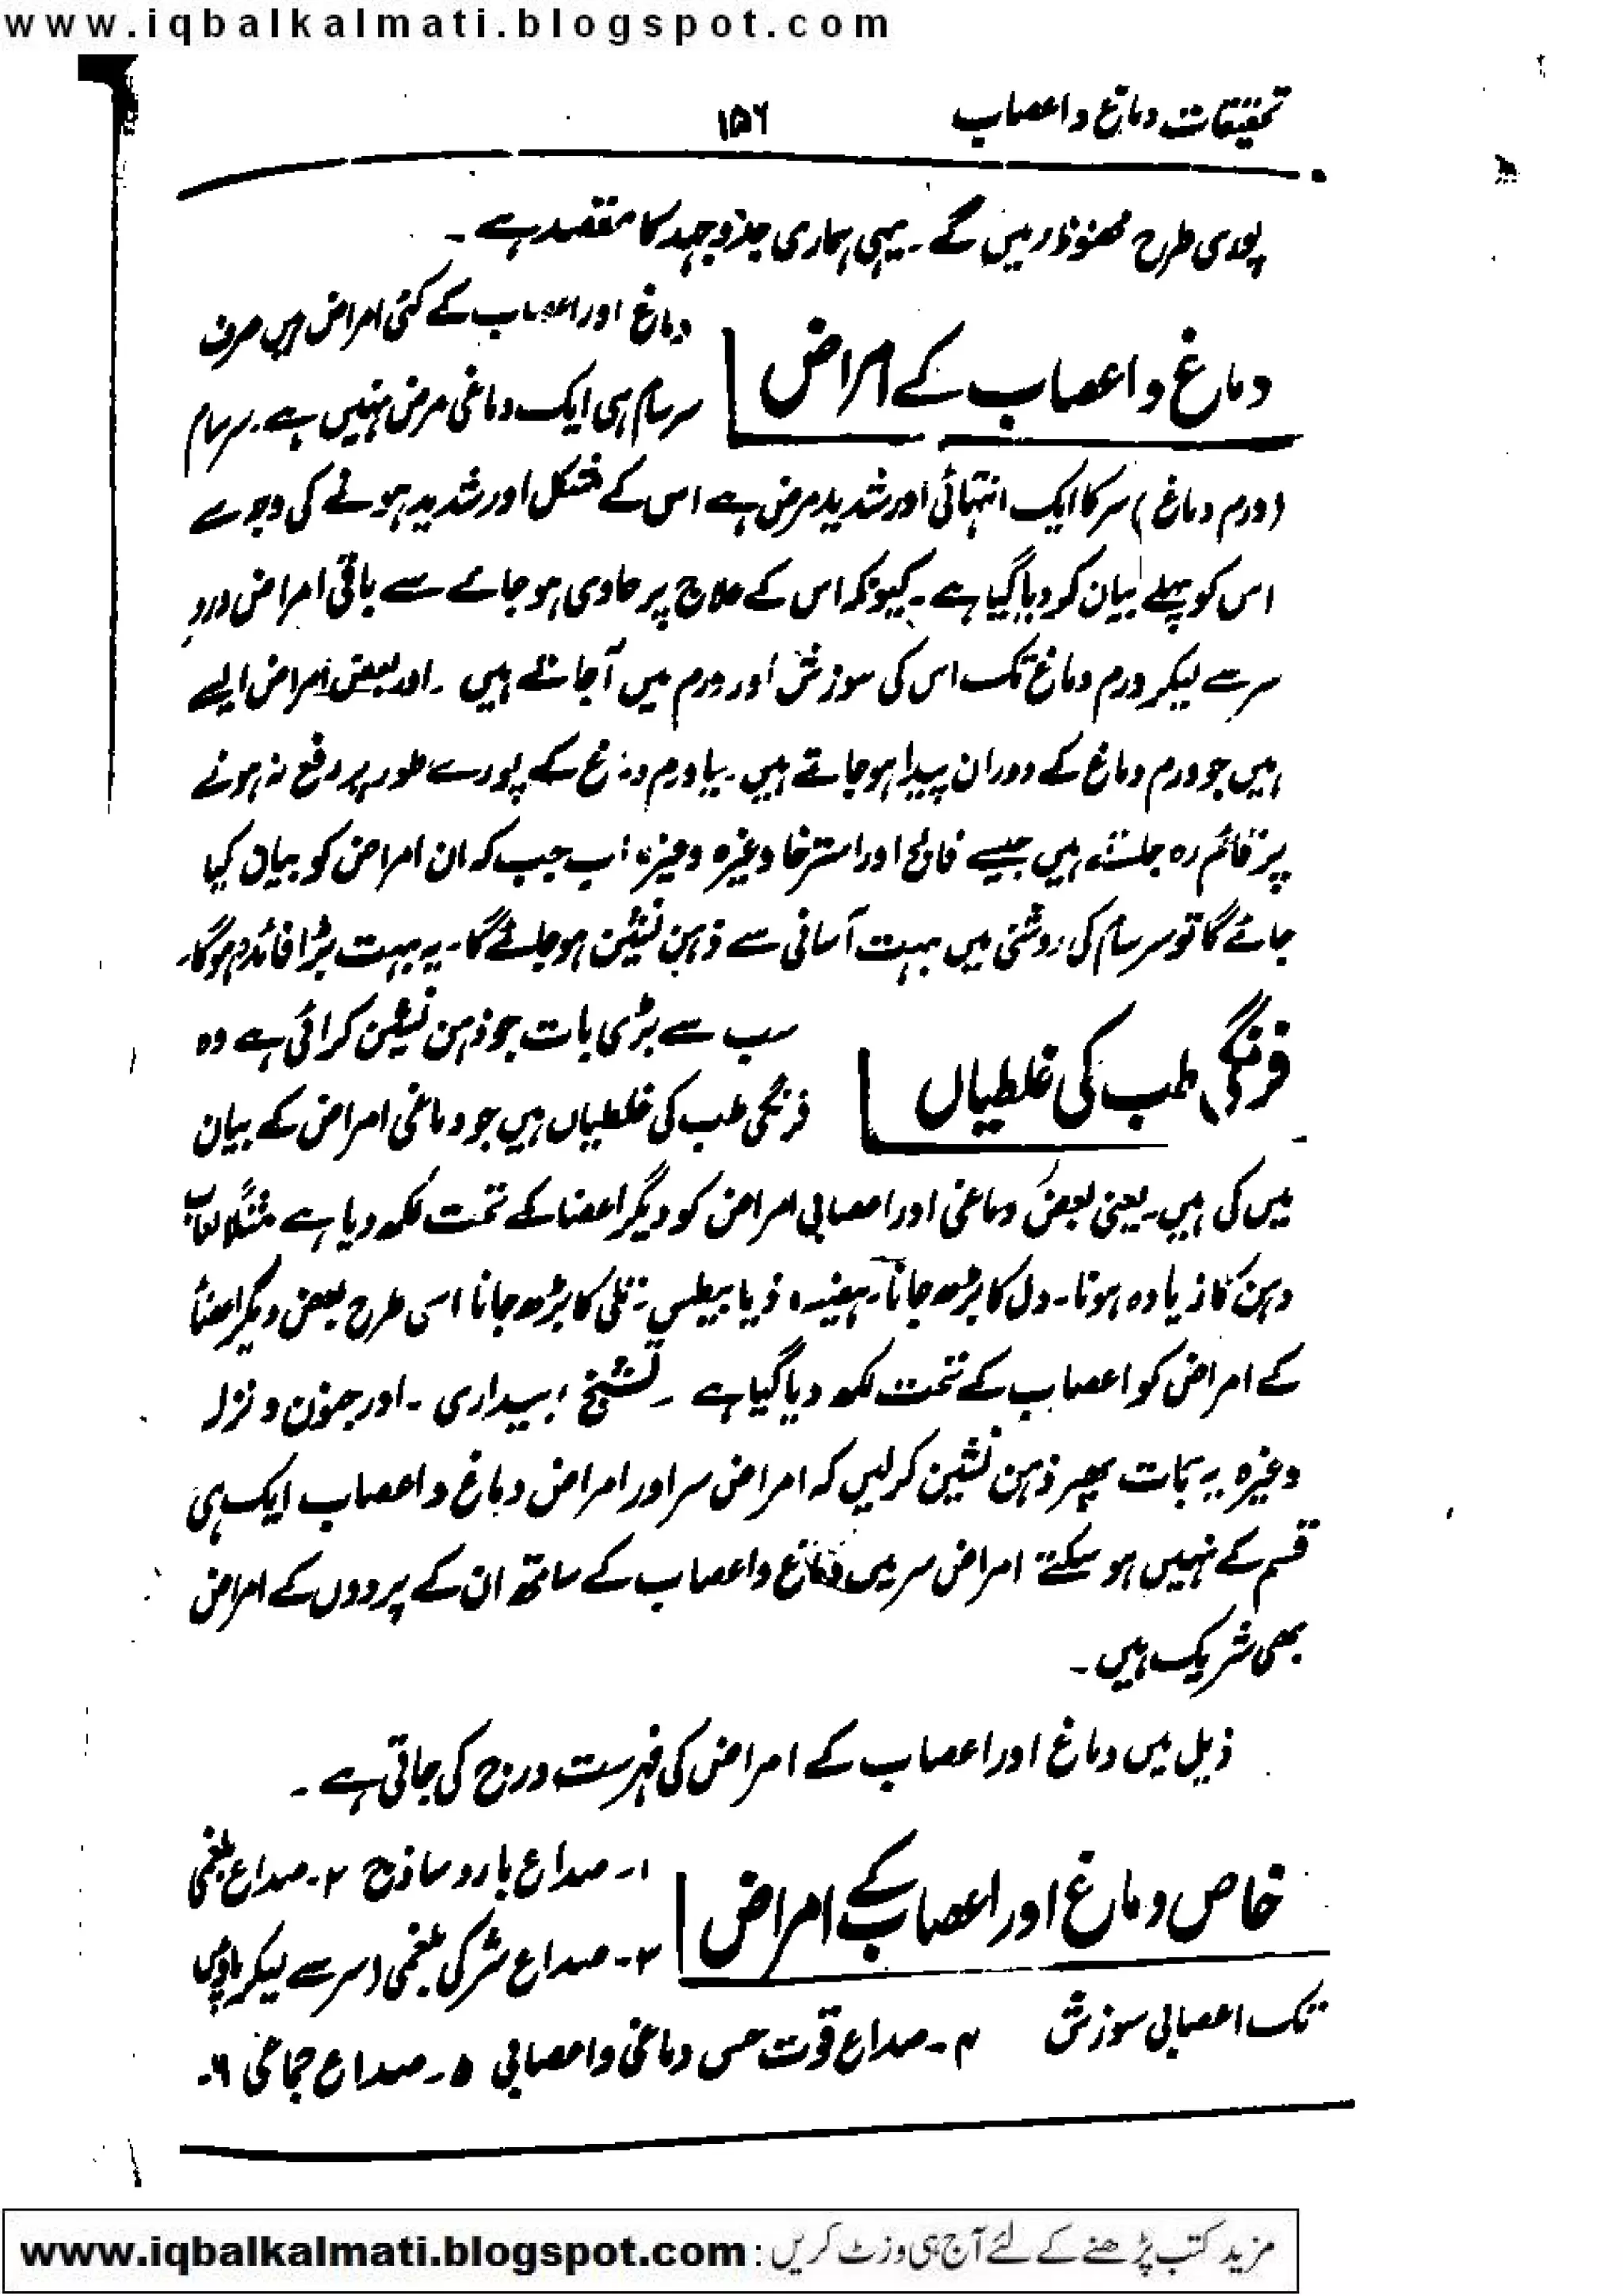 www.iqbalkalmati.blogspot.com
تحقیقات دماغ و اعصاب
۱۵۶
پوری طرح محفوظ رہیں گے۔ یہی ہماری جدوجہد کا مقصد ہے۔
دماغ و اعصاب کے امراض
دماغ اور اعصاب کے کئی امراض ہیں صرف
سرسام ہی ایک دماغی مرض نہیں ہے۔ سرسام
(ورم دماغ) سر کا ایک انتہائی اور شدید مرض ہے اس کے مشکل اور شدید ہونے کی وجہ سے
اس کو پہلے بیان کر دیا گیا ہے۔ کیونکہ اس کے علاج پر حاوی ہو جانے سے باقی امراض درد
سر سے لیکر ورم دماغ تک اس کی سوزش اور ورم میں آجاتے ہیں۔ اور بعض امراض ایسے
ہیں جو ورم دماغ کے دوران پیدا ہو جاتے ہیں۔ یا ورم دماغ کے پورے طور پر رفع نہ ہونے
پر قائم رہ جاتے ہیں جیسے فالج اور استرخا وغیرہ وغیرہ، اب جب کہ ان امراض کو بیان کیا
جائے گا تو سرسام کی روشنی میں بہت آسانی سے ذہن نشین ہو جائے گا۔ یہ بہت بڑا فائدہ ہوگا۔
فرنگی طب کی غلطیاں
سب سے بڑی بات جو ذہن نشین کرائی ہے وہ
فرنگی طب کی غلطیاں ہیں جو دماغی امراض کے بیان
میں کی ہیں۔ یعنی بعض دماغی اور اعصابی امراض کو دیگر اعضا کے تحت لکھ دیا ہے مثلاً لعاب
دہن کا زیادہ ہونا۔ دل کا بڑھ جانا۔ ہیضہ، ذیابیطس۔ تلی کا بڑھ جانا اسی طرح بعض دیگر اعضا
کے امراض کو اعصاب کے تحت لکھ دیا گیا ہے۔ تشنج، بیداری۔ اور جنون و نزلہ
وغیرہ یہ بات پھر ذہن نشین کر لیں کہ امراض سر اور امراض دماغ و اعصاب ایک ہی
قسم کے نہیں ہو سکتے امراض سر میں دماغ و اعصاب کے ساتھ ان کے پردوں کے امراض
بھی شریک ہیں۔
ذیل میں دماغ اور اعصاب کے امراض کی فہرست درج کی جاتی ہے۔
خاص دماغ اور اعصاب کے امراض
۱۔ صداع بارد ساذج ۲۔ صداع بلغمی
۳۔ صداع شرکی بلغمی (سر سے لیکر پاؤں
تک اعصابی سوزش ۴۔ صداع قوت حس دماغی و اعصابی ۵۔ صداع جماعی ۶۔
مزید کتب پڑھنے کے لئے آج ہی وزٹ کریں : www.iqbalkalmati.blogspot.com